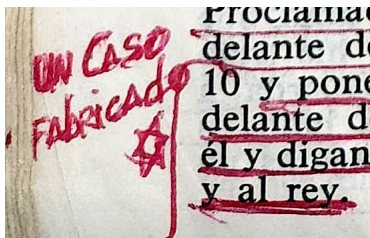 UN CASO
FABRICADO
Proclamad
delante d
10 y pone
delante d
él y digan
y al rey.